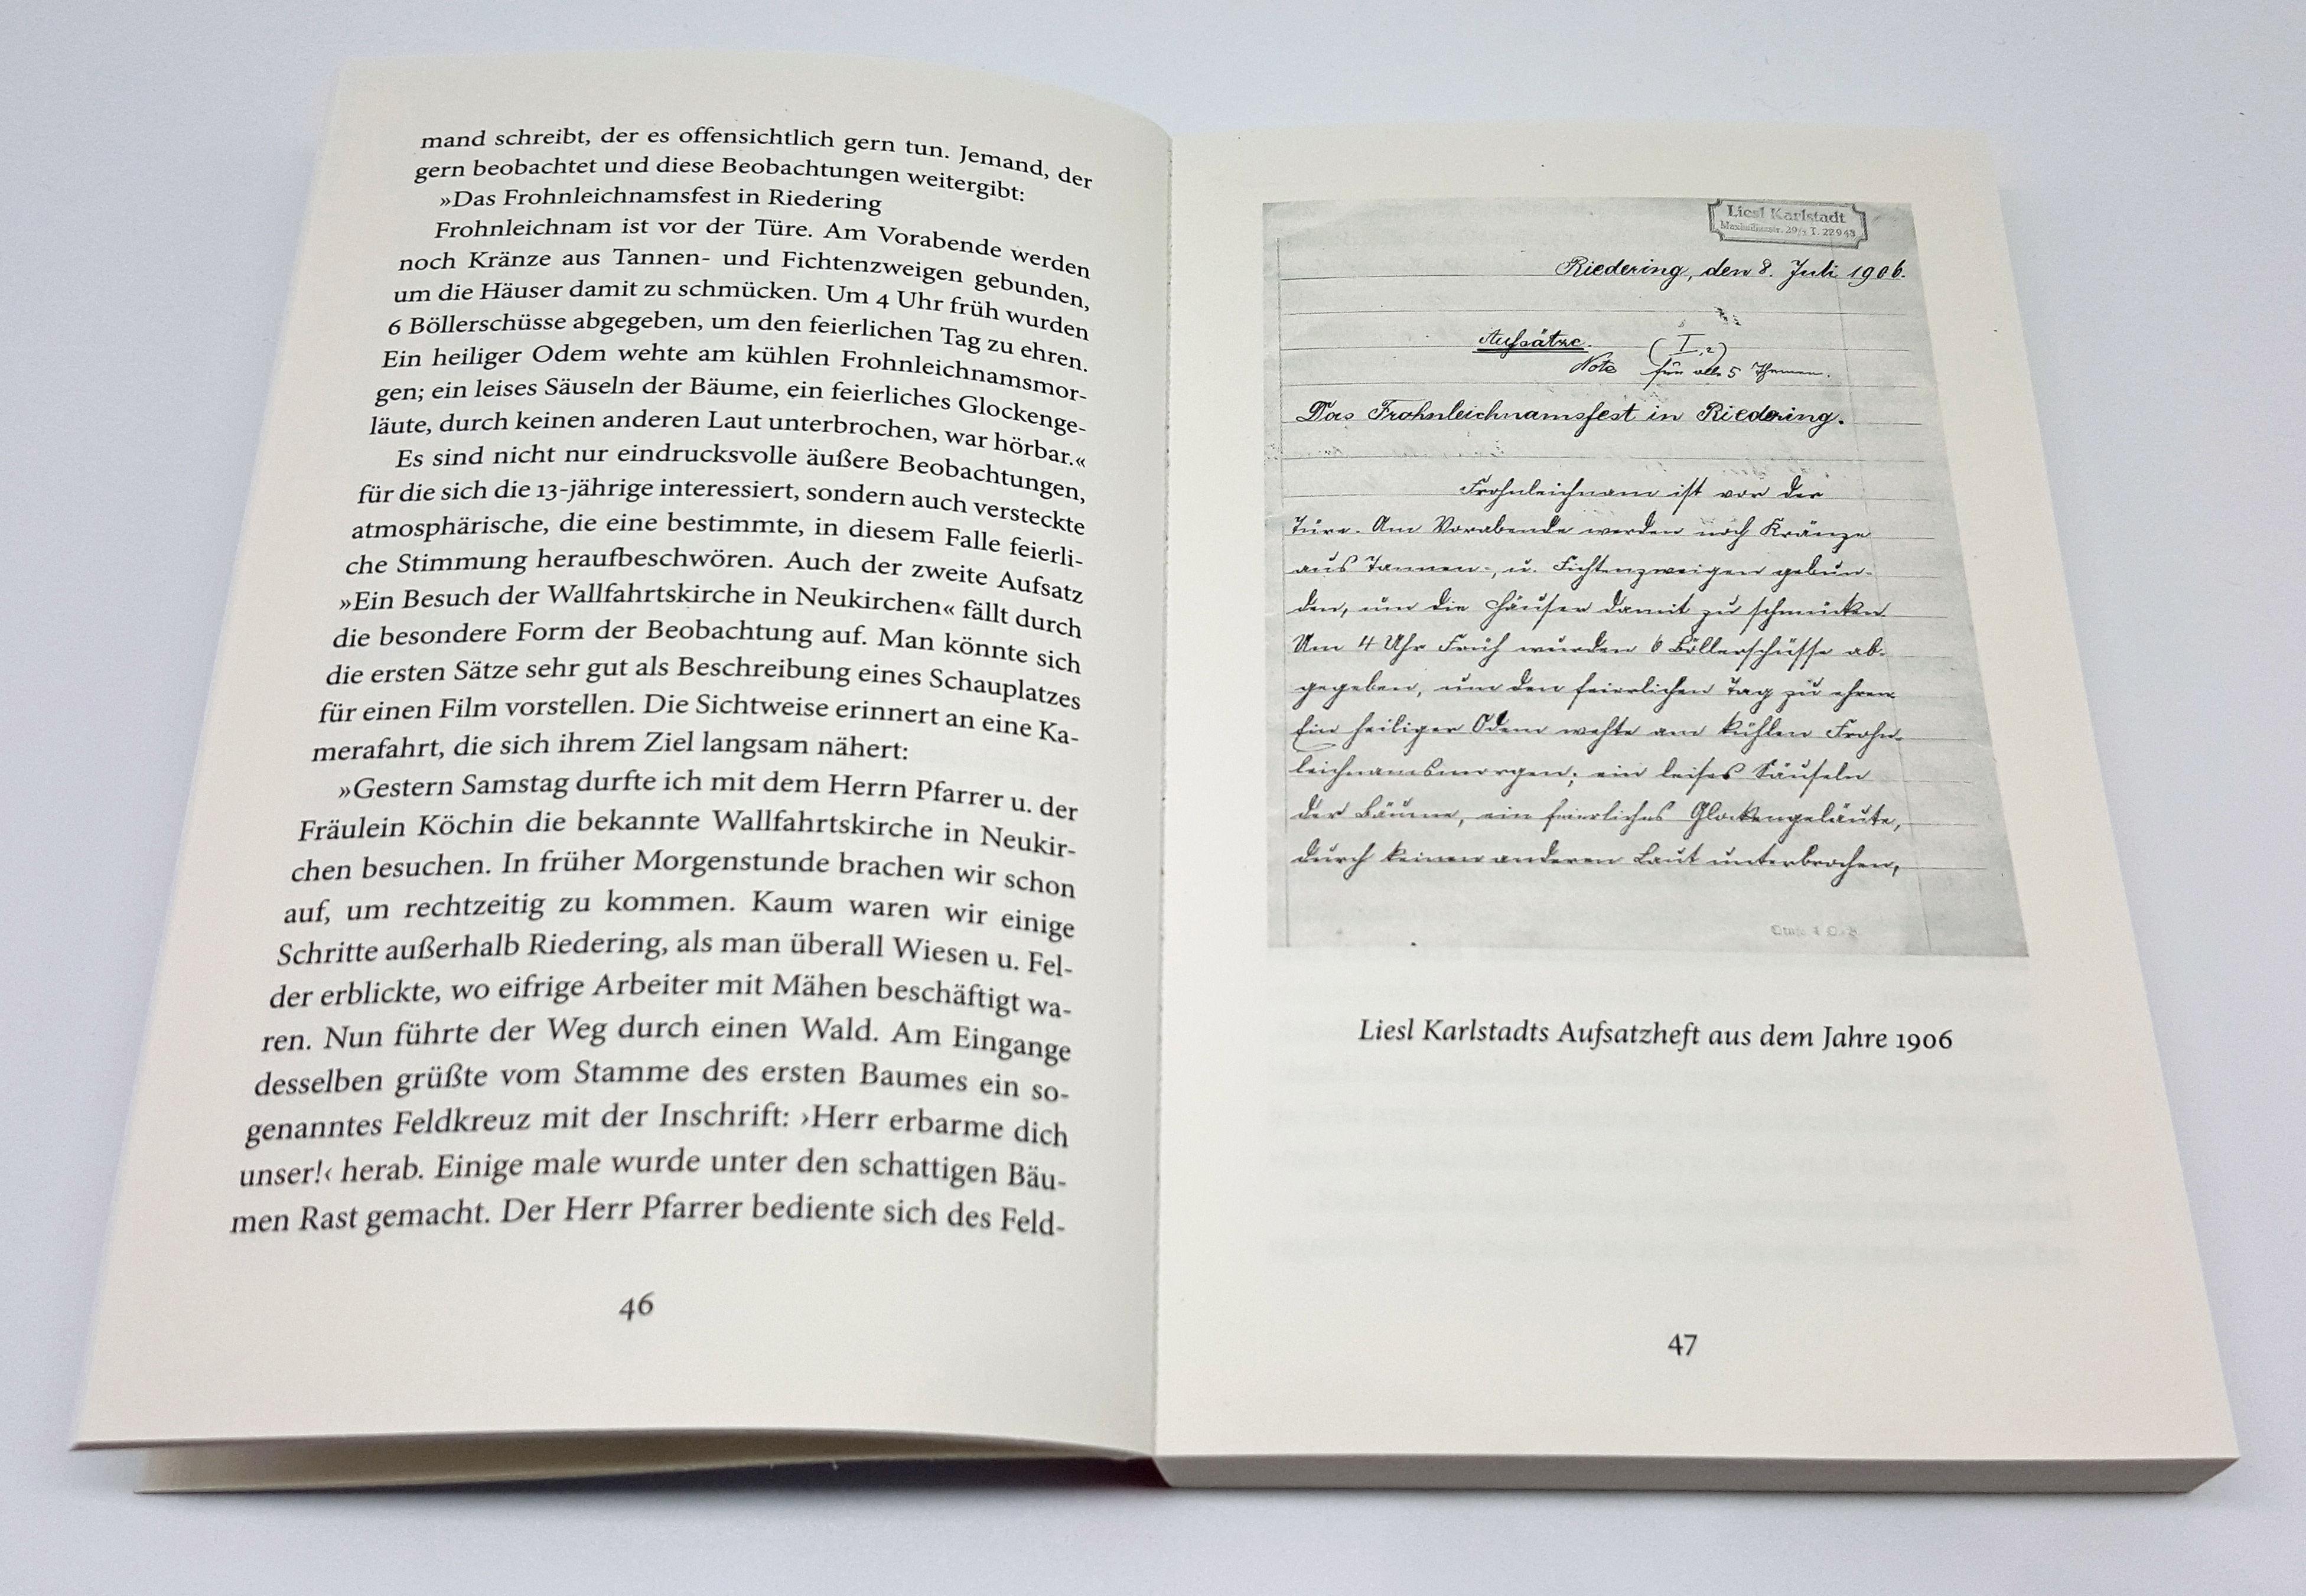 mand schreibt, der es offensichtlich gern tun. Jemand, der
gern beobachtet und diese Beobachtungen weitergibt:
»Das Frohnleichnamsfest in Riedering
Frohnleichnam ist vor der Türe. Am Vorabende werden
noch Kränze aus Tannen- und Fichtenzweigen gebunden,
um die Häuser damit zu schmücken. Um 4 Uhr früh wurden
6 Böllerschüsse abgegeben, um den feierlichen Tag zu ehren.
Ein heiliger Odem wehte am kühlen Frohnleichnamsmor-
gen; ein leises Säuseln der Bäume, ein feierliches Glockenge-
läute, durch keinen anderen Laut unterbrochen, war hörbar.«
Es sind nicht nur eindrucksvolle äußere Beobachtungen,
für die sich die 13-jährige interessiert, sondern auch versteckte
atmosphärische, die eine bestimmte, in diesem Falle feierli-
che Stimmung heraufbeschwören. Auch der zweite Aufsatz
»Ein Besuch der Wallfahrtskirche in Neukirchen« fällt durch
die besondere Form der Beobachtung auf. Man könnte sich
die ersten Sätze sehr gut als Beschreibung eines Schauplatzes
für einen Film vorstellen. Die Sichtweise erinnert an eine Ka-
merafahrt, die sich ihrem Ziel langsam nähert:
»Gestern Samstag durfte ich mit dem Herrn Pfarrer u. der
Fräulein Köchin die bekannte Wallfahrtskirche in Neukir-
chen besuchen. In früher Morgenstunde brachen wir schon
auf, um rechtzeitig zu kommen. Kaum waren wir einige
Schritte außerhalb Riedering, als man überall Wiesen u. Fel-
der erblickte, wo eifrige Arbeiter mit Mähen beschäftigt wa-
ren. Nun führte der Weg durch einen Wald. Am Eingange
desselben grüßte vom Stamme des ersten Baumes ein so-
genanntes Feldkreuz mit der Inschrift: ›Herr erbarme dich
unser!‹ herab. Einige male wurde unter den schattigen Bäu-
men Rast gemacht. Der Herr Pfarrer bediente sich des Feld-
46
Liesl Karlstadt
Maximilianstr. 29/3 T. 22943
Riedering, den 8. Juli 1906.
Aufsätze. (I,2)
Note für alle 5 Themen.
Das Frohnleichnamsfest in Riedering.
Frohnleichnam ist vor der
Türe. Am Vorabende werden noch Kränze
aus Tannen-, u. Fichtenzweigen gebun-
den, um die Häuser damit zu schmücken
Um 4 Uhr Früh wurden 6 Böllerschüsse ab-
gegeben, um den feierlichen Tag zu ehren.
Ein heiliger Odem wehte am kühlen Frohn-
leichnamsmorgen; ein leises Säuseln
der Bäume, ein feierliches Glockengeläute,
durch keinen anderen Laut unterbrochen,
Liesl Karlstadts Aufsatzheft aus dem Jahre 1906
47